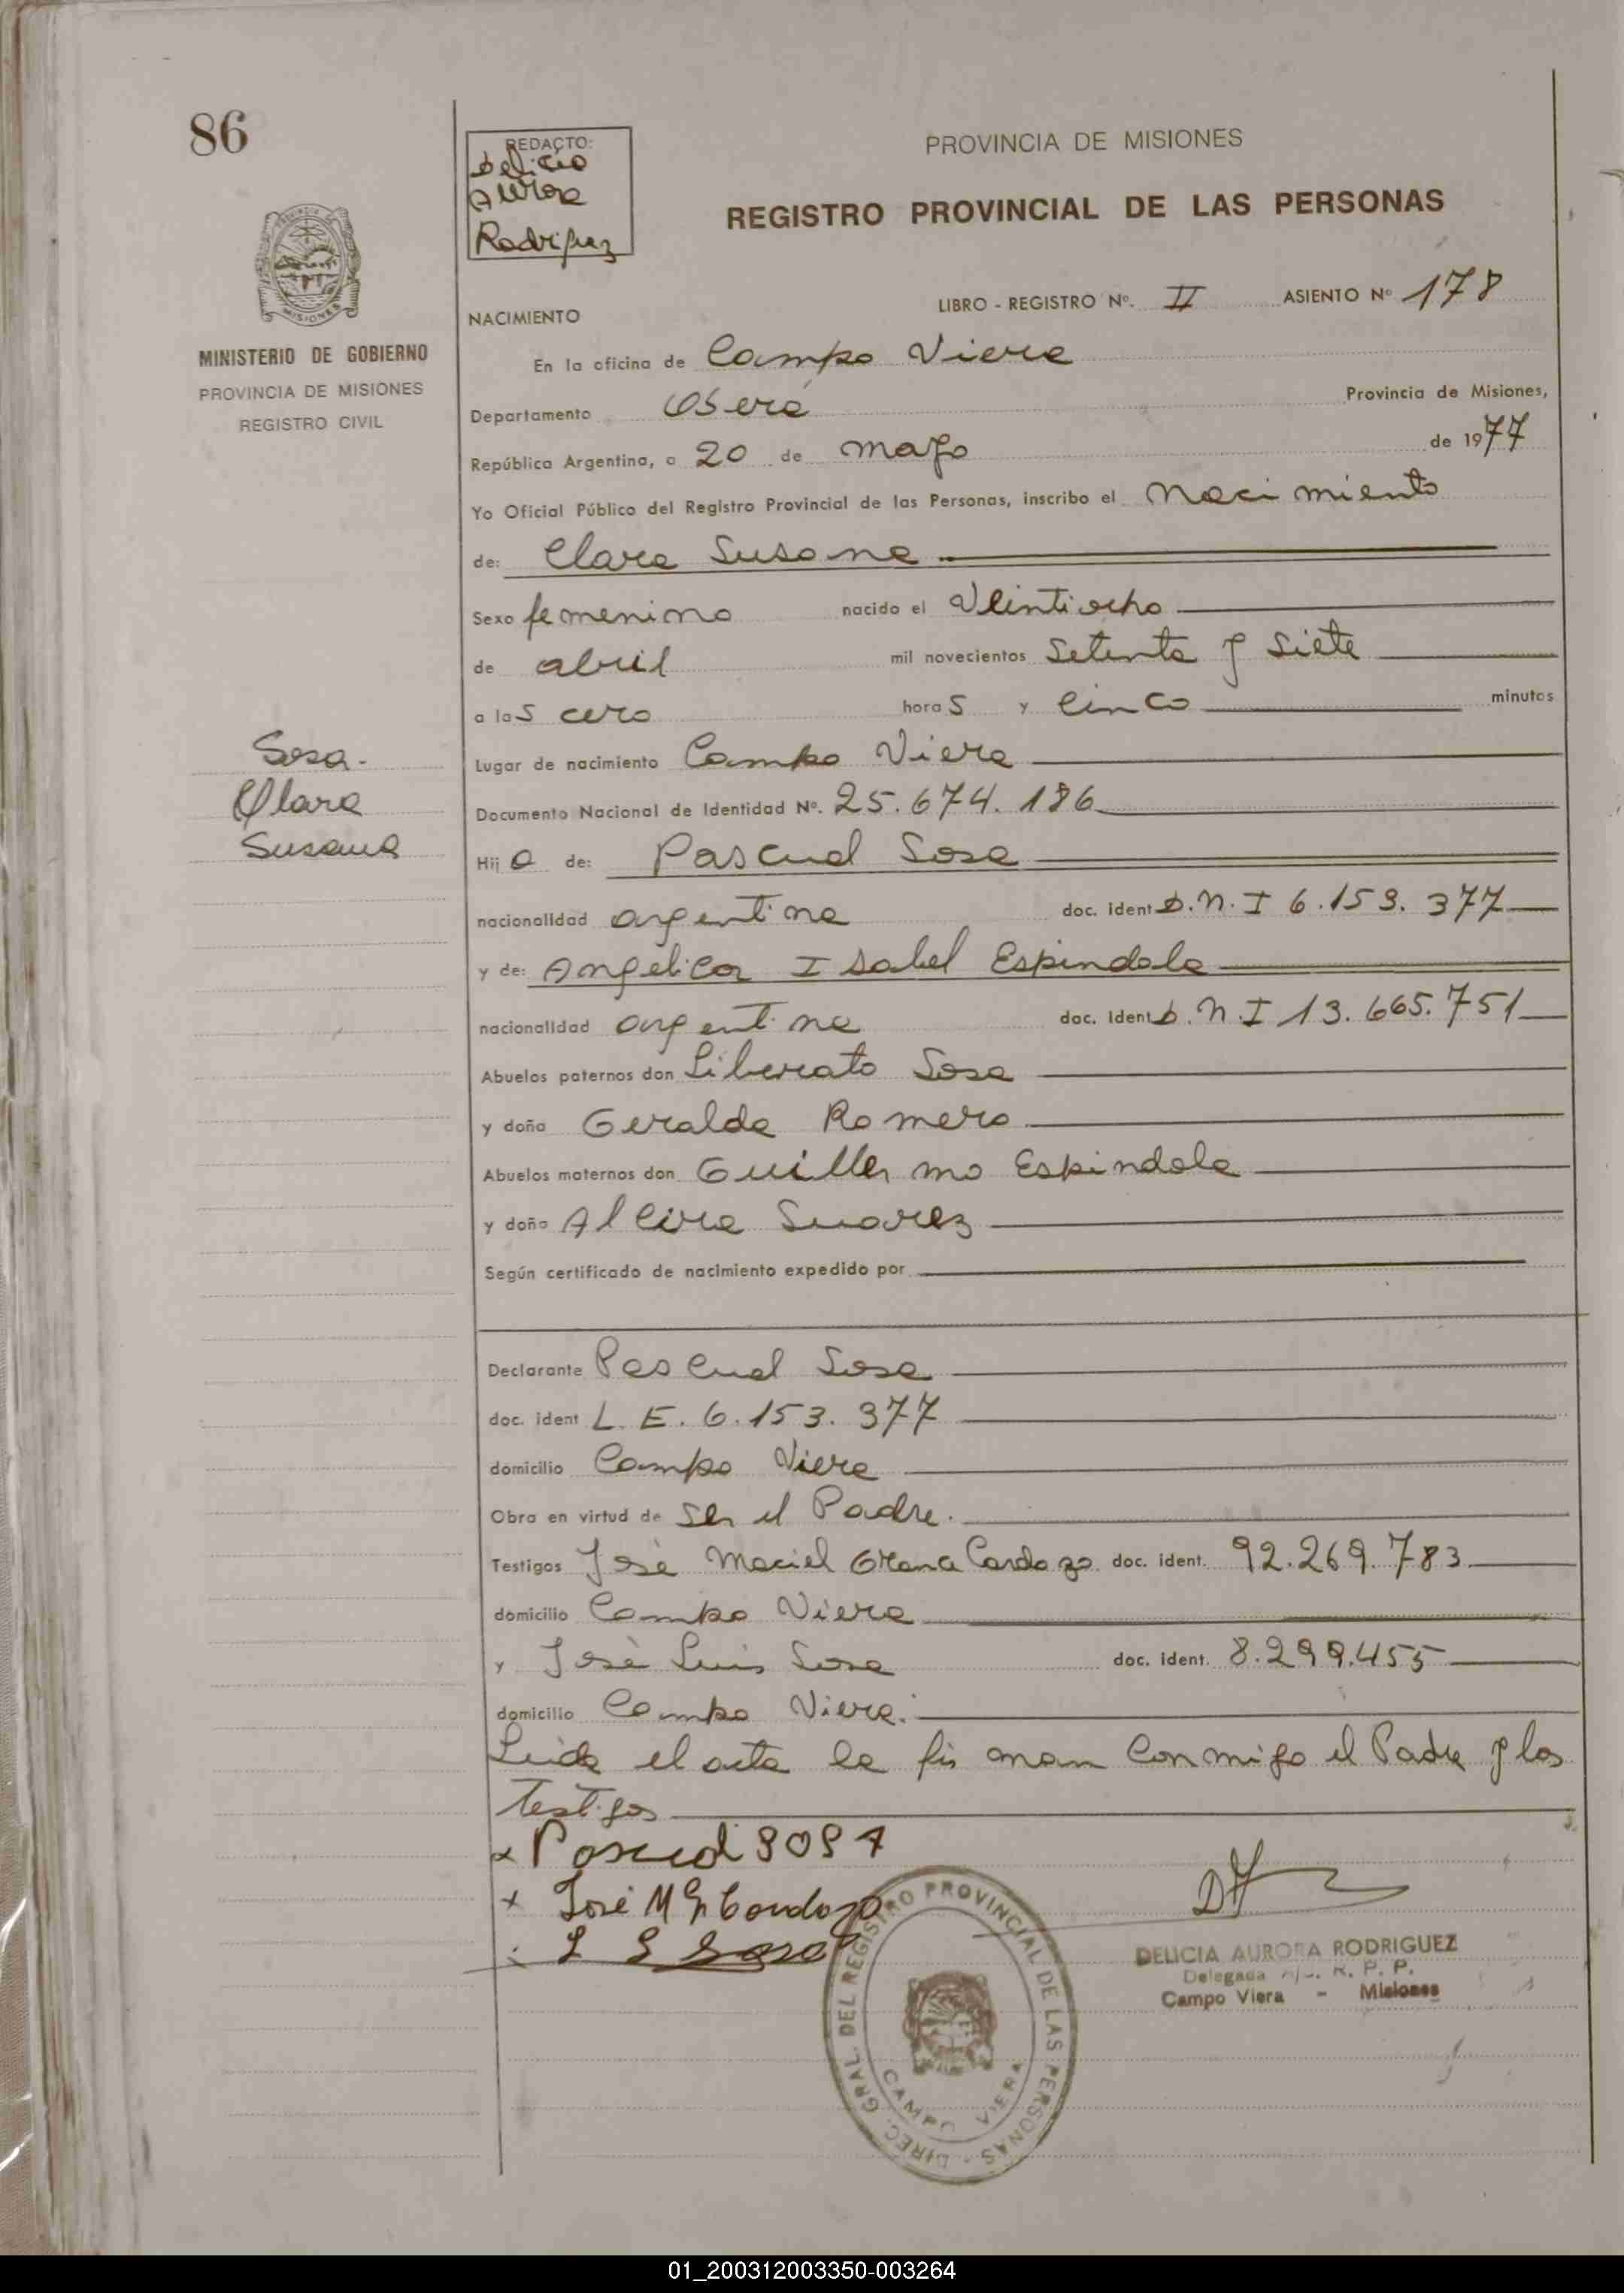 86
REDACTO:
Delicia
Aurora
Rodriguez
PROVINCIA DE MISIONES
REGISTRO PROVINCIAL DE LAS PERSONAS
MISIONES
MINISTERIO DE GOBIERNO
PROVINCIA DE MISIONES
REGISTRO CIVIL
NACIMIENTO
LIBRO - REGISTRO Nº. II ASIENTO Nº 178
En la oficina de Campo Viera
Departamento Oberá Provincia de Misiones,
República Argentina, a 20 de mayo de 1977
Yo Oficial Público del Registro Provincial de las Personas, inscribo el Nacimiento
de: Clara Susana
Sexo femenino nacido el Veintiocho
de abril mil novecientos Setenta y Siete
a las cero horas y cinco minutos
Sosa.
Clara
Susana
Lugar de nacimiento Campo Viera
Documento Nacional de Identidad Nº. 25.674.186
Hija de: Pascual Sosa
nacionalidad argentina doc. ident D.N.I 6.153.377
y de: Angelica Isabel Espindola
nacionalidad argentina doc. ident D.N.I 13.665.751
Abuelos paternos don Liberato Sosa
y doña Geralda Romero
Abuelos maternos don Guillermo Espindola
y doña Alcira Suarez
Según certificado de nacimiento expedido por
Declarante Pascual Sosa
doc. ident L.E. 6.153.377
domicilio Campo Viera
Obra en virtud de ser el Padre.
Testigos José Maciel Cardozo doc. ident. 92.269.783
domicilio Campo Viera
y José Luis Sosa doc. ident. 8.299.455
domicilio Campo Viera.
Leida el acta la firman conmigo el Padre y los
testigos
x Pascual Sosa
x José M Cardozo
Sosa
DIREC. GRAL. DEL REGISTRO PROVINCIAL DE LAS PERSONAS
CAMPO VIERA
DELICIA AURORA RODRIGUEZ
Delegada R. P. P.
Campo Viera - Misiones
01_200312003350-003264